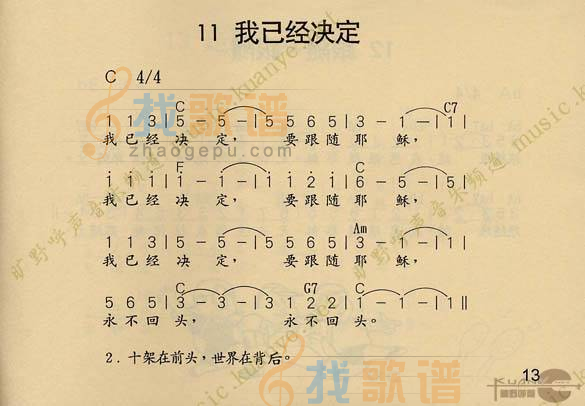 11 我已经决定
C 4/4
C C7
1 1 3 | 5 - 5 - | 5 5 6 5 | 3 - 1 - | 1 |
我 已 经 决 定， 要 跟 随 耶 稣，
F C
1 1 1 | 1 - 1 - | 1 1 2 1 | 6 - 5 - | 5 |
我 已 经 决 定， 要 跟 随 耶 稣，
Am
1 1 3 | 5 - 5 - | 5 5 6 5 | 3 - 1 - | 1 |
我 已 经 决 定， 要 跟 随 耶 稣，
C G7 C
5 6 5 | 3 - 3 - | 3 1 2 2 | 1 - 1 - | 1 ||
永 不 回 头， 永 不 回 头。
2．十架在前头，世界在背后。
13
找歌谱
zhaogepu.com
找歌谱
旷野呼声音乐频道 music.kuanye.net
旷野呼声音乐频道 music.kuanye.net
KUANYE
旷野呼声